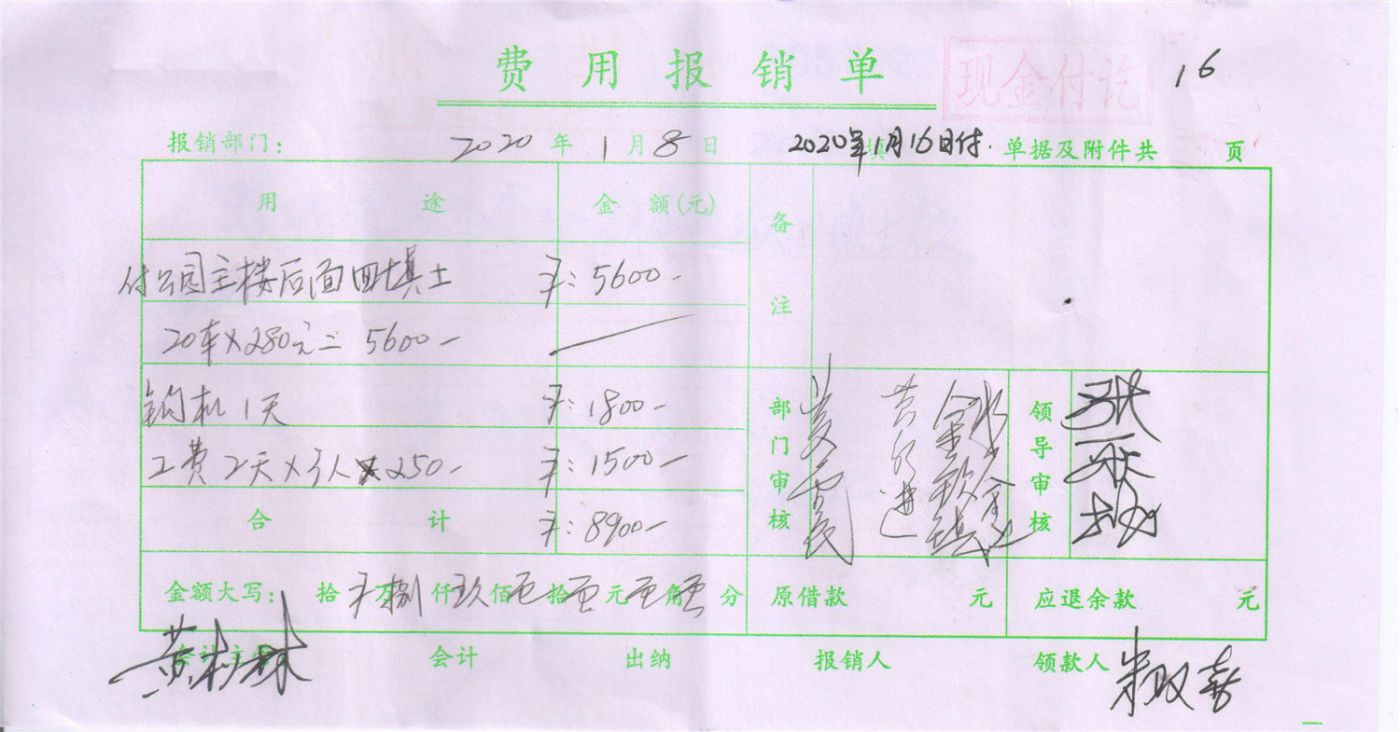 费用报销单
现金付讫
16
报销部门： 2020年1月8日 2020年1月16日付. 单据及附件共 页
用途 金额(元) 备注
付公园主楼后面回填土 ￥：5600-
20车×280元= 5600-
钩机1天 ￥：1800-
工费2天×3人×250- ￥：1500-
部门审核 领导审核
合计 ￥：8900-
金额大写： 拾 万捌仟玖佰零拾零元零角零分 原借款 元 应退余款 元
会计主管 会计 出纳 报销人 领款人
黄树林